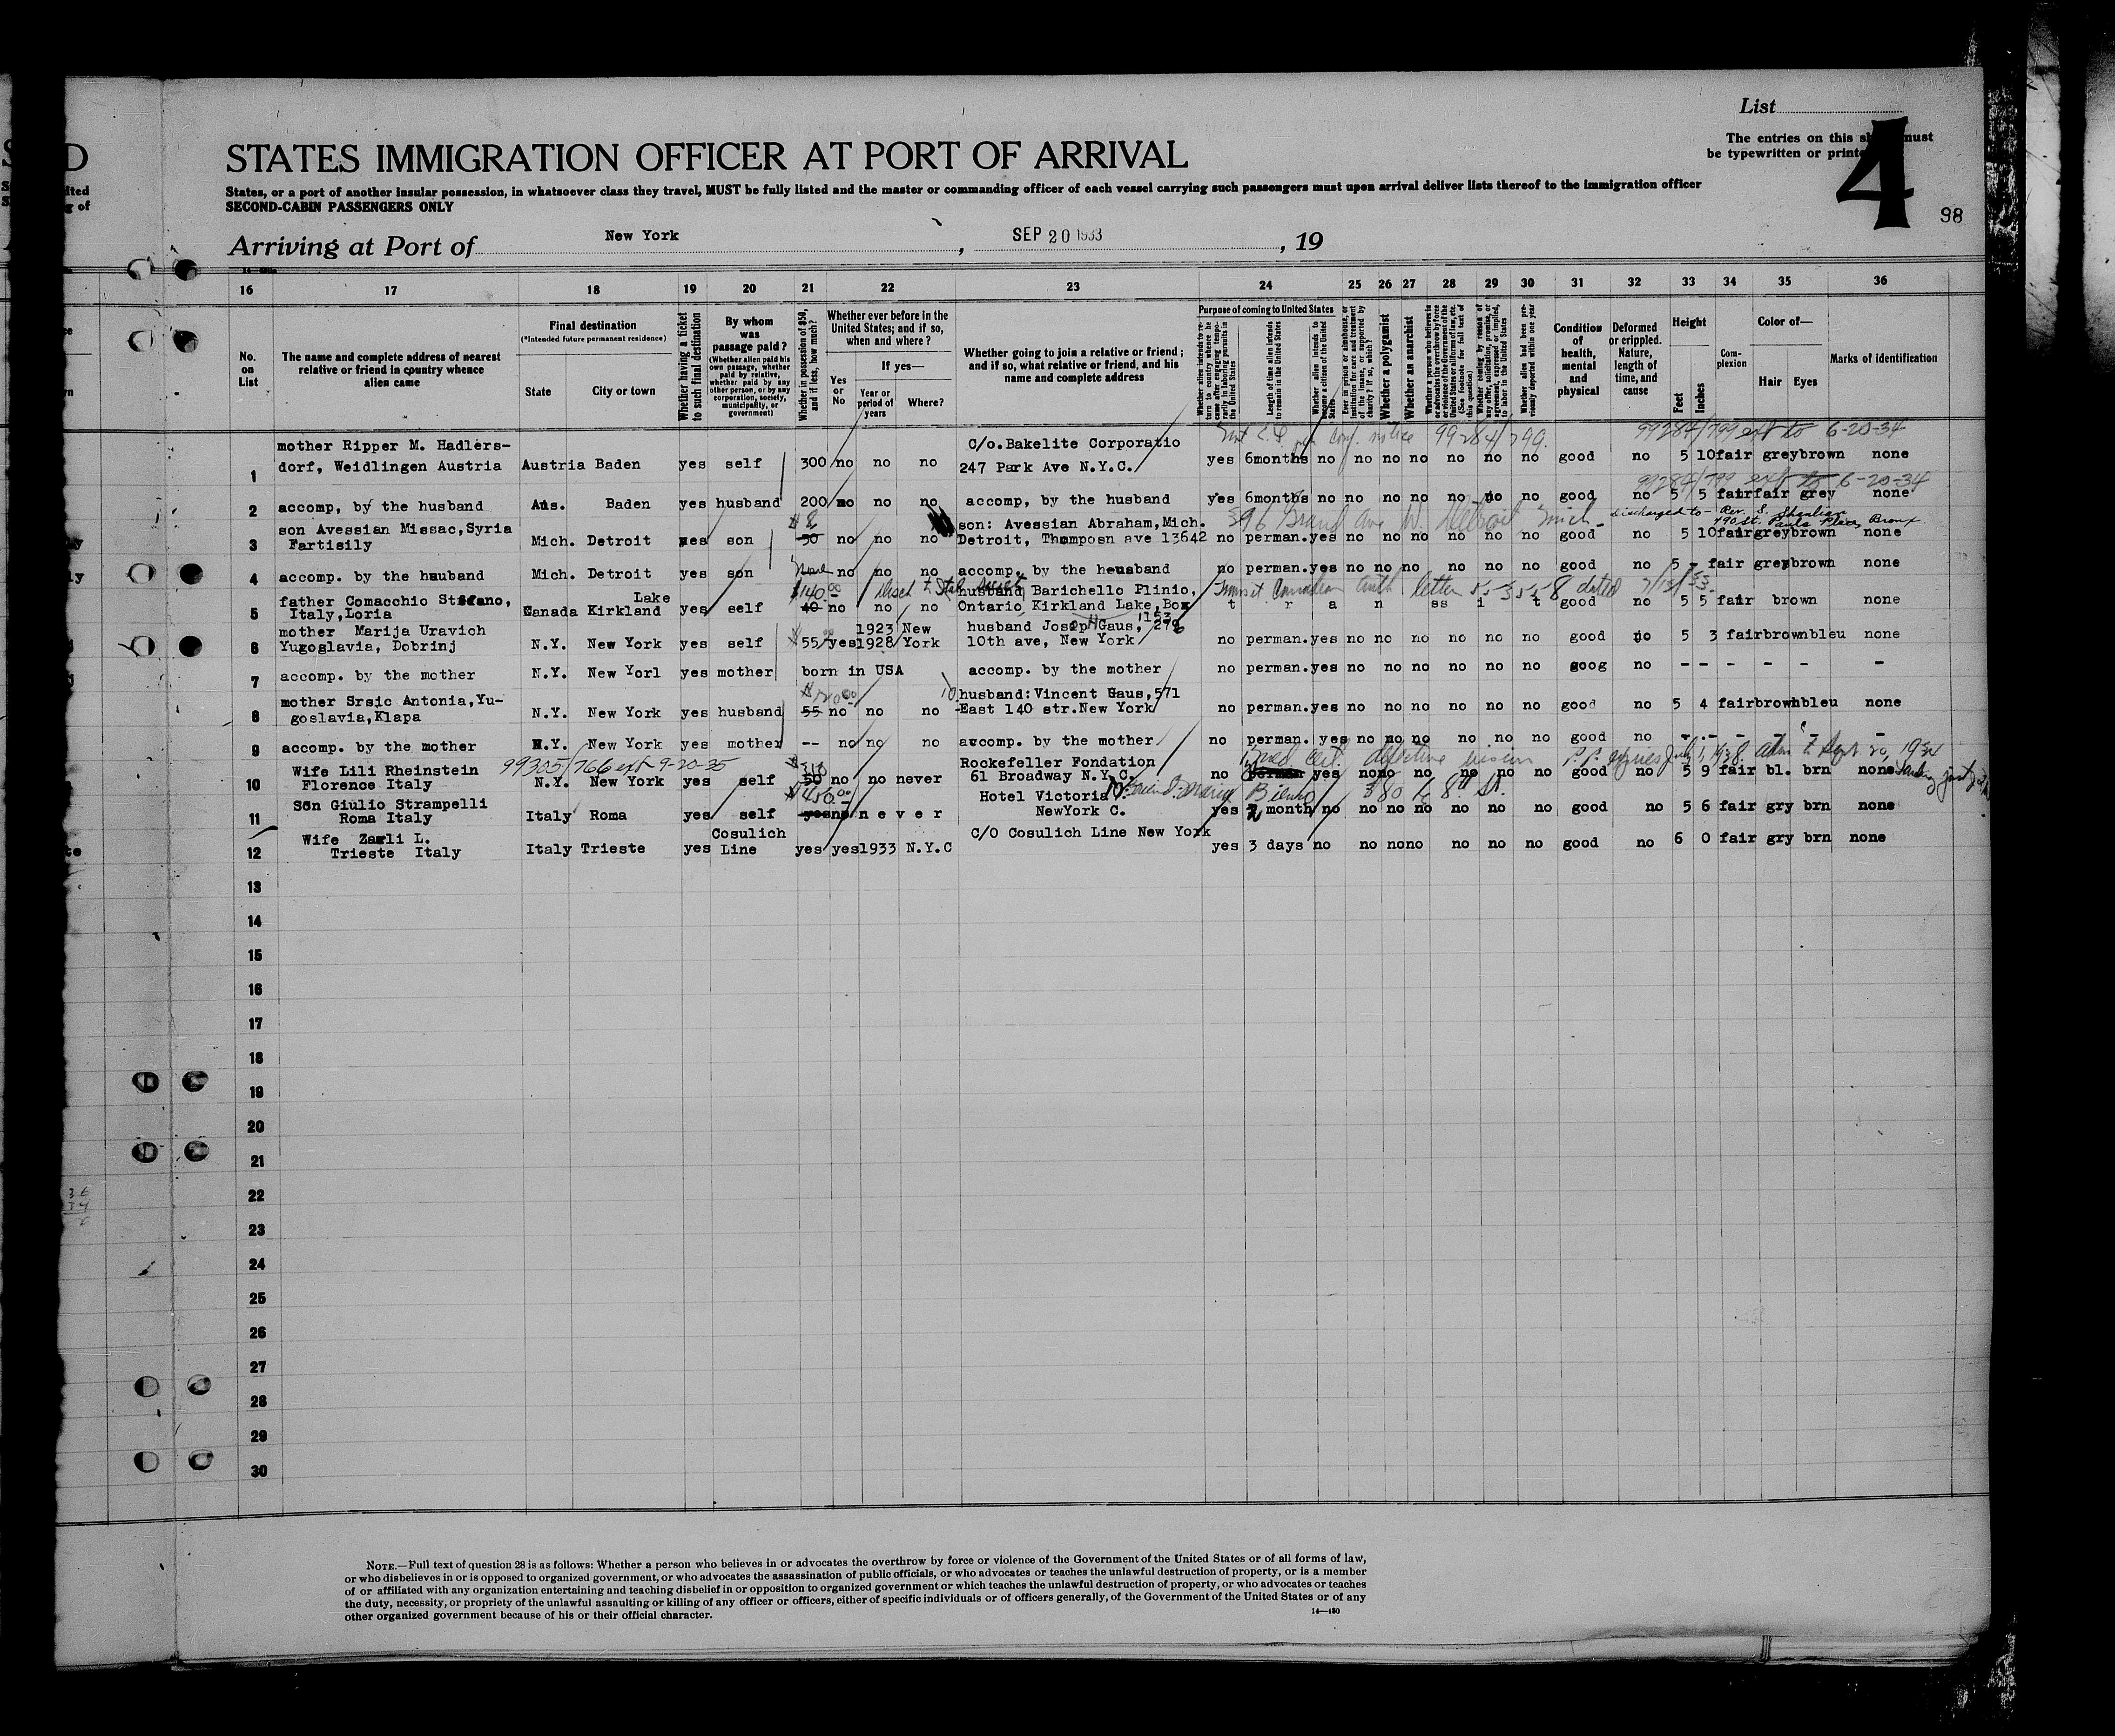 List
The entries on this sh must
be typewritten or printe
4
98
STATES IMMIGRATION OFFICER AT PORT OF ARRIVAL
States, or a port of another insular possession, in whatsoever class they travel, MUST be fully listed and the master or commanding officer of each vessel carrying such passengers must upon arrival deliver lists thereof to the immigration officer
SECOND-CABIN PASSENGERS ONLY
Arriving at Port of New York, SEP 20 1933, 19
16 17 18 19 20 21 22 23 24 25 26 27 28 29 30 31 32 33 34 35 36
No. on List
The name and complete address of nearest relative or friend in country whence alien came
Final destination
(*Intended future permanent residence)
State City or town
Whether having a ticket to such final destination
By whom was passage paid?
(Whether alien paid his own passage, whether paid by relative, whether paid by any other person, or by any corporation, society, municipality, or government)
Whether in possession of $50, and if less, how much?
Whether ever before in the United States; and if so, when and where?
If yes—
Yes or No
Year or period of years
Where?
Whether going to join a relative or friend; and if so, what relative or friend, and his name and complete address
Purpose of coming to United States
Whether alien intends to return to country whence he came after engaging temporarily in laboring pursuits in the United States
Length of time alien intends to remain in the United States
Whether alien intends to become a citizen of the United States
Ever in prison or almshouse, or institution for care and treatment of the insane, or supported by charity? If so, which?
Whether a polygamist
Whether an anarchist
Whether a person who believes in or advocates the overthrow by force or violence of the Government of the United States or all forms of law, etc. (See footnote for full text of this question)
Whether coming by reason of any offer, solicitation, promise, or agreement, expressed or implied, to labor in the United States
Whether alien had been previously deported within one year
Condition of health, mental and physical
Deformed or crippled. Nature, length of time, and cause
Height
Feet Inches
Complexion
Color of—
Hair Eyes
Marks of identification
99284/799 6-20-34
mother Ripper M. Hadlers- C/o.Bakelite Corporatio
1 dorf, Weidlingen Austria Austria Baden yes self 300 no no no 247 Park Ave N.Y.C. yes 6months no no no no no no no good no 5 10 fair grey brown none
99284/799 6-20-34
2 accomp, by the husband Aus. Baden yes husband 200 no no no accomp, by the husband yes 6months no no no no no no no good no 5 5 fair fair grey none
$8 396 Grand Ave W. Detroit Mich. discharged to - Rev. S. 490 St. Pauls Place, Bronx
son Avessian Missac,Syria son: Avessian Abraham,Mich.
3 Fartisily Mich. Detroit yes son 50 no no no Detroit, Thomposn ave 13642 no perman. yes no no no no no no good no 5 10 fair grey brown none
4 accomp. by the hauband Mich. Detroit yes son no no no accomp, by the heusband no perman. yes no no no no no no good no 5 - fair grey brown none
$140.00 letter dated
father Comacchio Stefano, Lake husband Barichello Flinio,
5 Italy,Loria Canada Kirkland yes self 40 no no no Ontario Kirkland Lake,Box 1153 t r a n ss i t good no 5 5 fair brown none
mother Marija Uravich 1923 New husband Josep Gaus, 279
6 Yugoslavia, Dobrinj N.Y. New York yes self 55 yes 1928 York 10th ave, New York no perman. yes no no no no no no good no 5 3 fair brown bleu none
7 accomp. by the mother N.Y. New Yorl yes mother born in USA accomp. by the mother no perman. yes no no no no no no goog no - - - - - -
mother Srsic Antonia,Yu- husband: Vincent Gaus,571
8 goslavia,Klapa N.Y. New York yes husband 55 no no no East 140 str.New York no perman. yes no no no no no no good no 5 4 fair brown bleu none
9 accomp. by the mother N.Y. New York yes mother -- no no no avcomp. by the mother no perman. yes no no no no no no good no - - - - - -
99305/766 ext 9-20-35 defective vision
Wife Lili Rheinstein Rockefeller Fondation
10 Florence Italy N.Y. New York yes self 50 no no never 61 Broadway N.Y.C. no perman yes no no no no no no good no 5 9 fair bl. brn none
$450.00 380 8th St.
Son Giulio Strampelli Hotel Victoria
11 Roma Italy Italy Roma yes self yes no never NewYork C. yes 2 month no no no no no no no good no 5 6 fair gry brn none
Wife Zarli L. Cosulich C/O Cosulich Line New York
12 Trieste Italy Italy Trieste yes Line yes yes 1933 N.Y.C yes 3 days no no no no no no no good no 6 0 fair gry brn none
13
14
15
16
17
18
19
20
21
22
23
24
25
26
27
28
29
30
NOTE.—Full text of question 28 is as follows: Whether a person who believes in or advocates the overthrow by force or violence of the Government of the United States or of all forms of law,
or who disbelieves in or is opposed to organized government, or who advocates the assassination of public officials, or who advocates or teaches the unlawful destruction of property, or is a member
of or affiliated with any organization entertaining and teaching disbelief in or opposition to organized government or which teaches the unlawful destruction of property, or who advocates or teaches
the duty, necessity, or propriety of the unlawful assaulting or killing of any officer or officers, either of specific individuals or of officers generally, of the Government of the United States or of any
other organized government because of his or their official character.
14—430